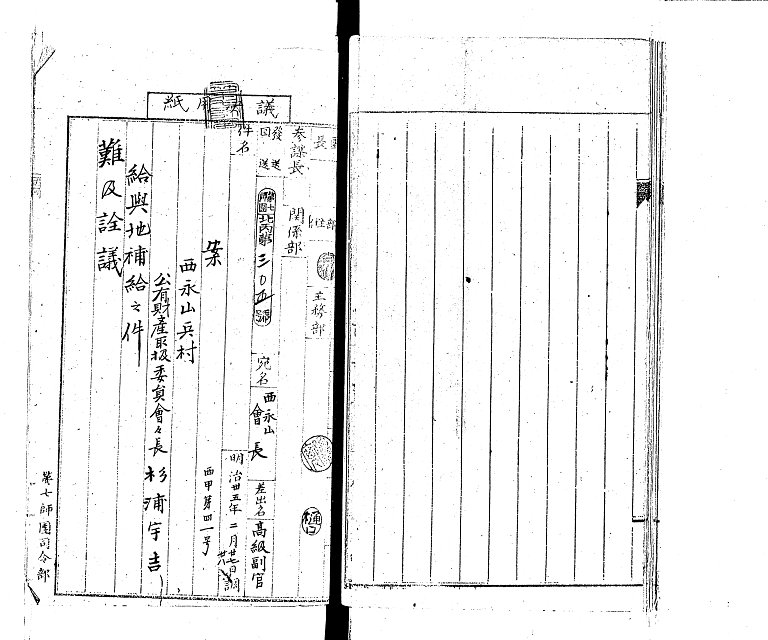 議
用紙
參謀長
長
関係部
主務部
樋口
件名
發送
回送
北丙第三〇五號
宛名
西永山會長
差出名
高級副官
明治卅五年二月廿七日調
廿八
西甲第四一号
案
西永山兵村
公有財産取扱委員會々長杉浦宇吉
給與地補給之件
難及詮議
第七師團司令部